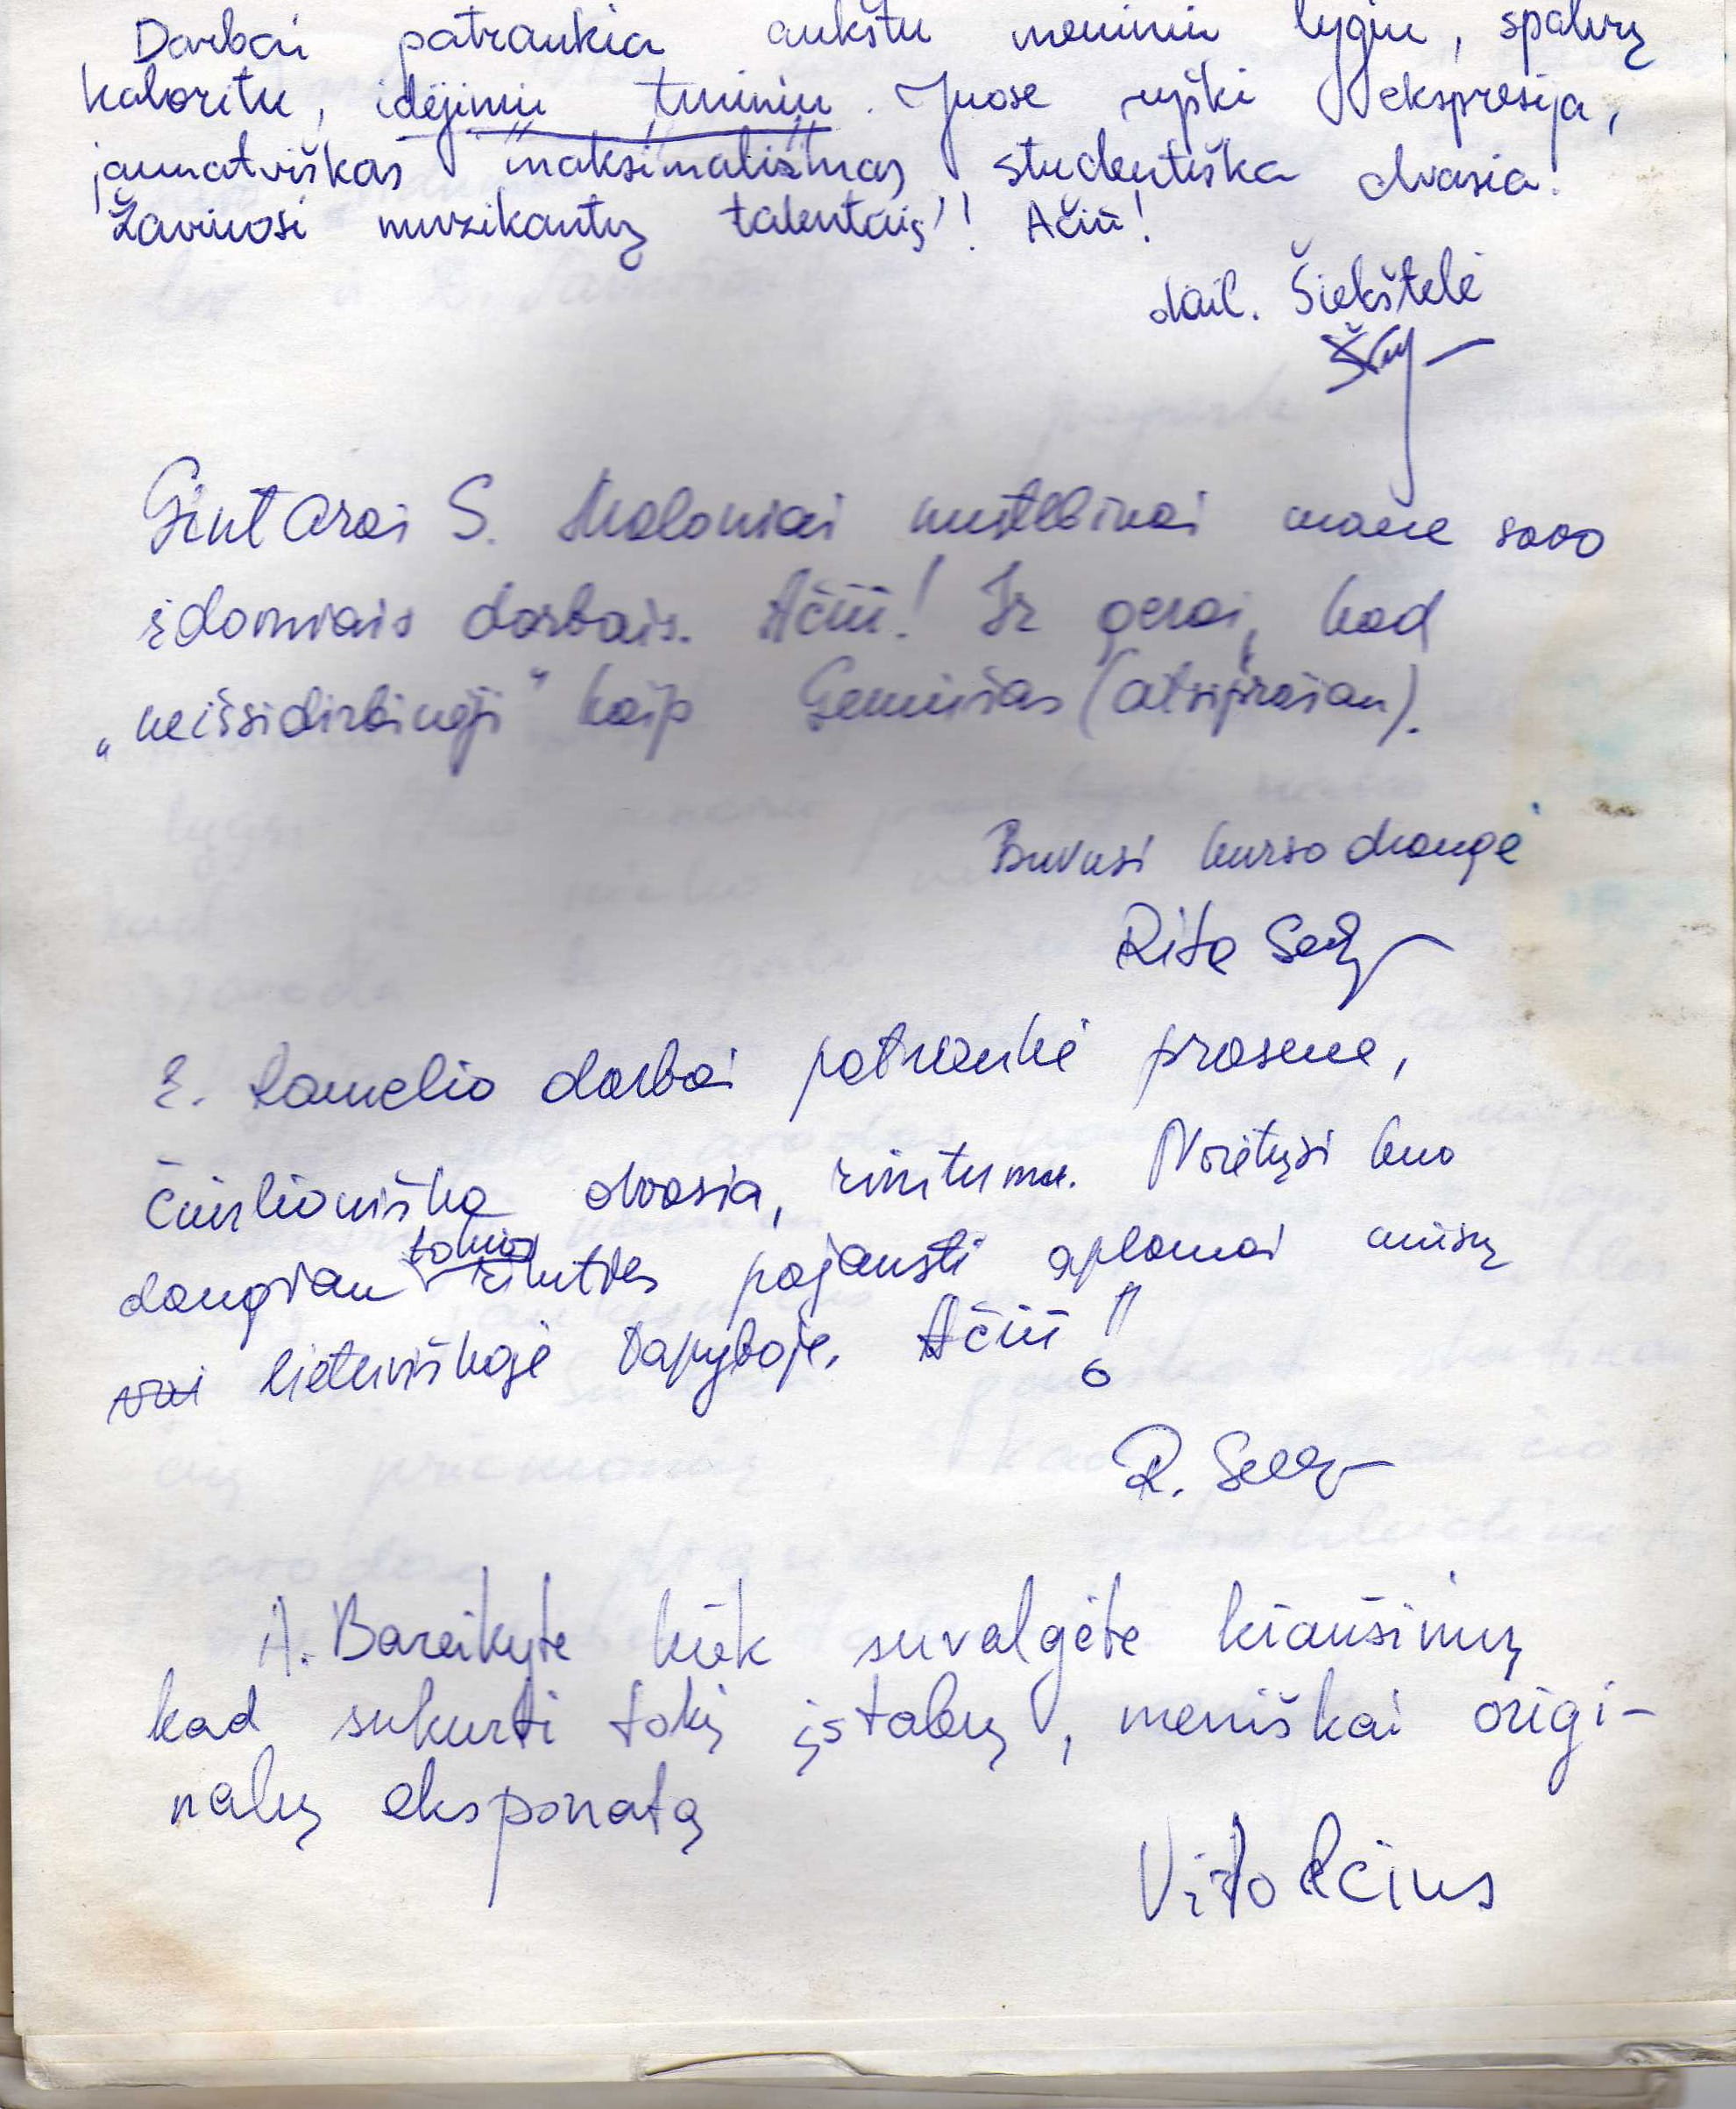 Darbai patraukia aukštu meniniu lygiu, spalvų
koloritu, idėjiniu turiniu. Juose ryški ekspresija,
jaunatviškas maksimalizmas studentiška dvasia.
Žaviuosi muzikantų talentais! Ačiū!
dail. Šiekštelė
Gintarai S. Maloniai nustebinai mane savo
įdomiais darbais. Ačiū! Ir gerai, kad
„neišsidirbinėji“ kaip (atsiprašau).
Buvusi kurso draugė
Rita
E. darbai patraukė prasme,
čiurlioniška dvasia, rimtumu. Norėtųsi kuo
daugiau tokios rimties pajausti aplamai mūsų
lietuviškoje tapyboje. Ačiū!
R.
A. Bareikyte kiek suvalgėte kiaušinių
kad sukurti tokį įstabų, meniškai origi-
nalų eksponatą